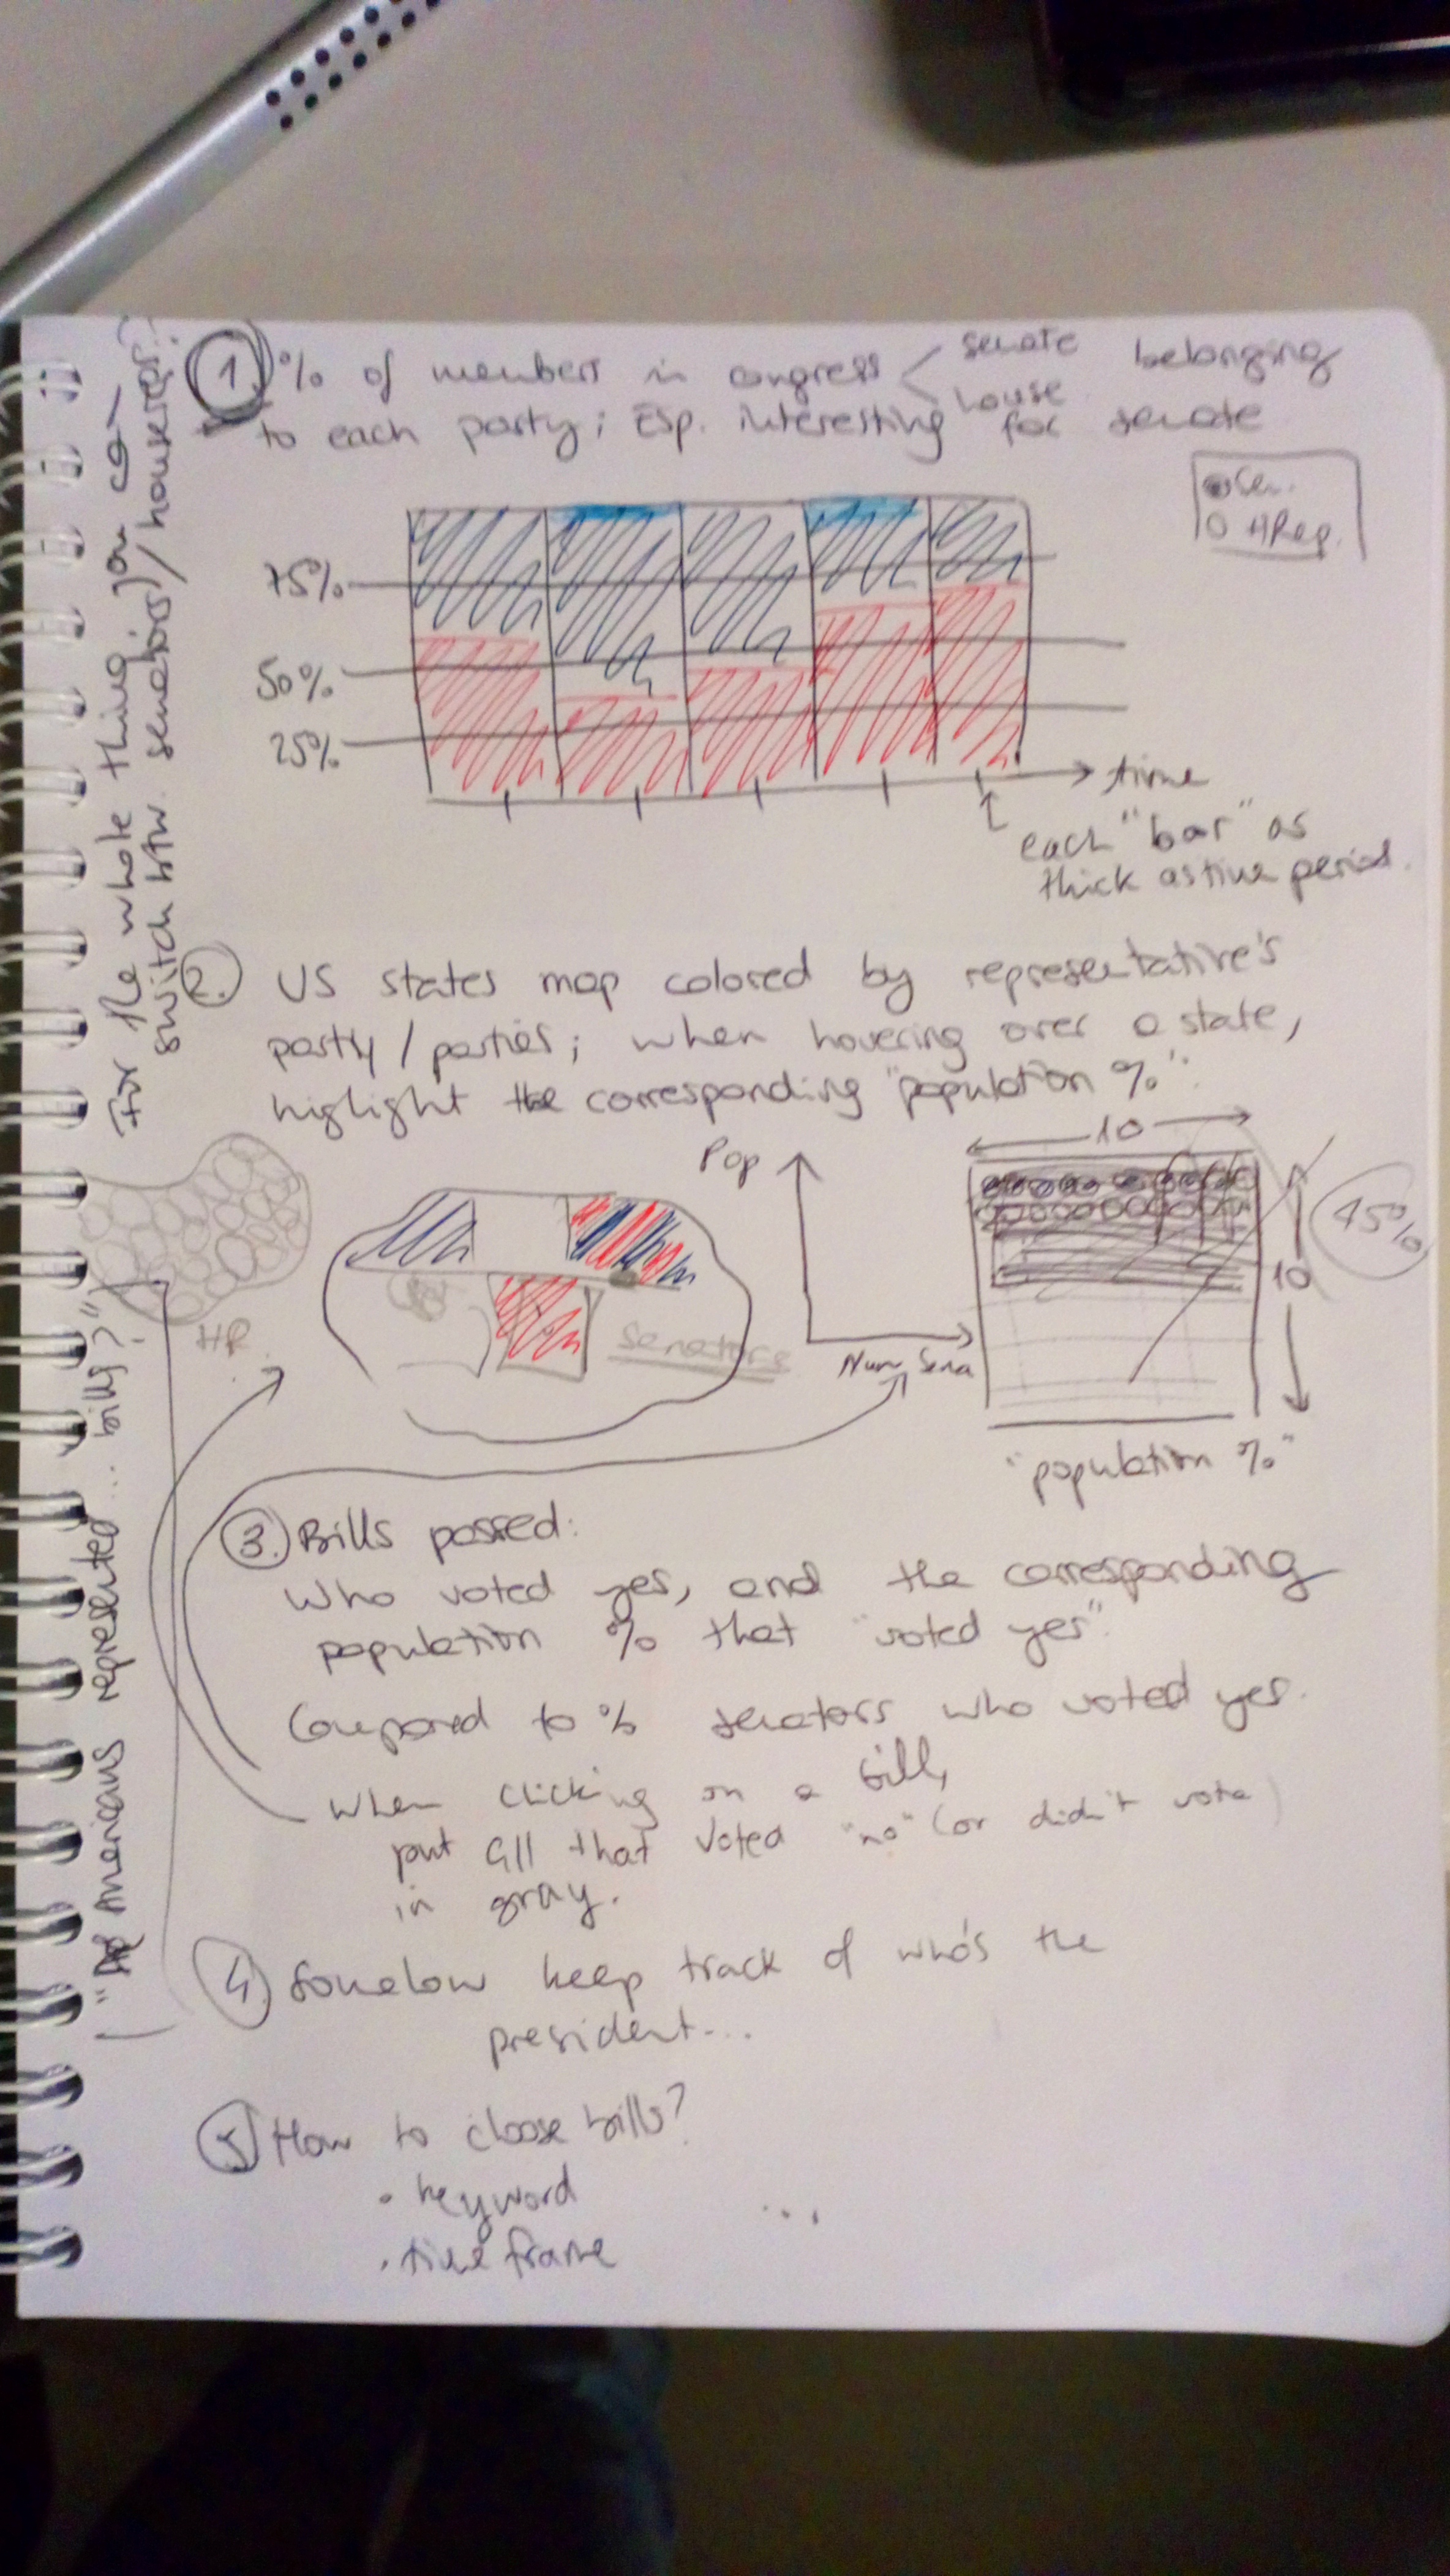 1. % of members in congress < senate belonging
house
to each party; Esp. interesting for senate
Sen.
HRep.
75%
50%
25%
time
each "bar" as
thick as time period.
For the whole thing you can
switch btw. senators / houserep.?
2. US states map colored by representative's
party / parties; when hovering over a state,
highlight the corresponding "population %".
HR
senators
Pop
Num Sena
10
10
45%
"population %"
3. Bills passed:
Who voted yes, and the corresponding
population % that "voted yes".
Compared to % senators who voted yes.
When clicking on a bill,
put all that voted "no" (or didn't vote)
in gray.
Americans represented ... bills?")
4. Somehow keep track of who's the
president...
5. How to choose bills?
• keyword
• time frame
...